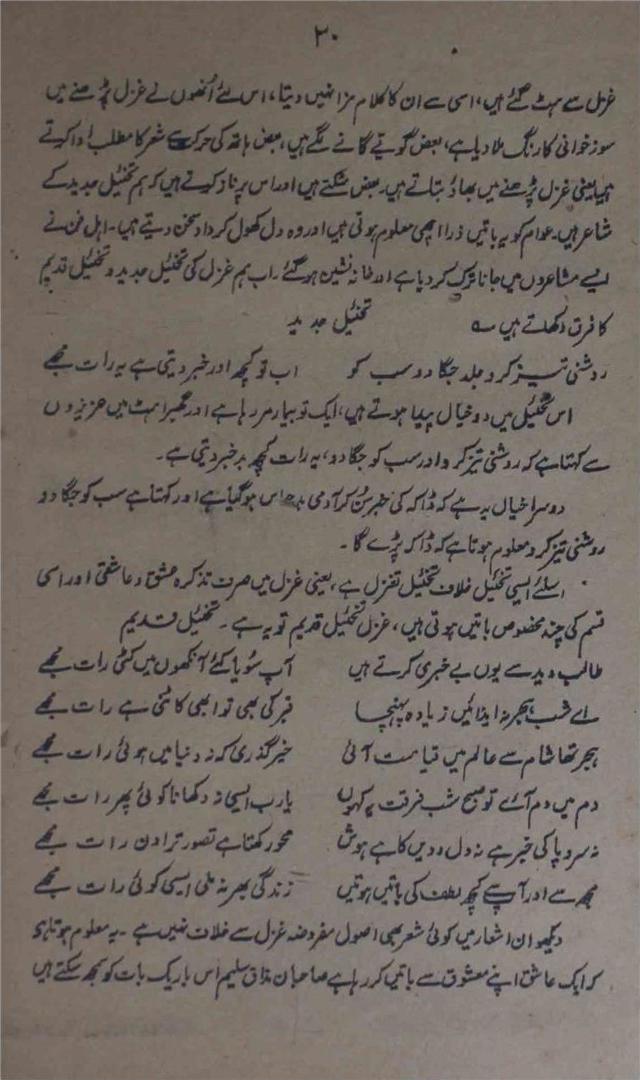 ۲۰
غزل سے ہٹ گئے ہیں، اسی سے ان کا کلام مزا نہیں دیتا، اس لئے اُنھوں نے غزل پڑھنے میں
سوز خوانی کا رنگ ملا دیا ہے، بعض گویّے گانے لگے ہیں، بعض ہاتھ کی حرکت سے شعر کا مطلب ادا کرتے
ہیں یعنی غزل پڑھنے میں بھاؤ بتاتے ہیں۔ بعض مٹکتے ہیں اور اس پر ناز کرتے ہیں کہ ہم تخئیل جدید کے
شاعر ہیں۔ عوام کو یہ باتیں ذرا اچھی معلوم ہوتی ہیں اور وہ دل کھول کر داد سخن دیتے ہیں۔ اہل فن نے
ایسے مشاعروں میں جانا ترک کر دیا ہے اور خانہ نشین ہو گئے۔ اب ہم غزل کی تخئیل جدید و تخئیل قدیم
کا فرق دکھلاتے ہیں ؎ تخئیل جدید
روشنی تیز کرو جلد جگا دو سب کو اب تو کچھ اور خبر دیتی ہے یہ رات مجھے
اس تخئیل میں دو خیال پیدا ہوتے ہیں، ایک تو بیمار مر رہا ہے اور گھبراہٹ میں عزیزوں
سے کہتا ہے کہ روشنی تیز کرو اور سب کو جگا دو، یہ رات کچھ بد خبر دیتی ہے۔
دوسرا خیال یہ ہے کہ ڈاکہ کی خبر سُن کر آدمی بدحواس ہو گیا ہے اور کہتا ہے سب کو جگا دو
روشنی تیز کرو معلوم ہوتا ہے کہ ڈاکہ پڑے گا۔
اسلئے ایسی تخئیل خلاف تخئیل تغزل ہے، یعنی غزل میں صرف تذکرہ عشق و عاشقی اور اسی
قسم کی چند مخصوص باتیں ہوتی ہیں، غزل تخئیل قدیم تو یہ ہے۔ تخئیل قدیم
طالب دید سے یوں بے خبری کرتے ہیں آپ سُویا کئے آنکھوں میں کٹی رات مجھے
اے شب ہجر نہ ایذائیں زیادہ پہنچا قبر کی بھی تو ابھی کاٹنی ہے رات مجھے
ہجر تھا شام سے عالم میں قیامت آئی خیر گذری کہ نہ دنیا میں ہوئی رات مجھے
دم میں دم آئے تو صبح شب فرقت یہ کہوں یارب ایسی نہ دکھانا کوئی پھر رات مجھے
نہ سر و پا کی خبر ہے نہ دل و دیں کا ہے ہوش محو رکھتا ہے تصور ترا دن رات مجھے
مجھ سے اور آپ سے کچھ لطف کی باتیں ہوتیں زندگی بھر نہ ملی ایسی کوئی رات مجھے
دیکھو ان اشعار میں کوئی شعر بھی اصول مفروضہ غزل سے خلاف نہیں ہے۔ یہ معلوم ہوتا ہے
کہ ایک عاشق اپنے معشوق سے باتیں کر رہا ہے صاحبان مذاق سلیم اس باریک بات کو سمجھ سکتے ہیں